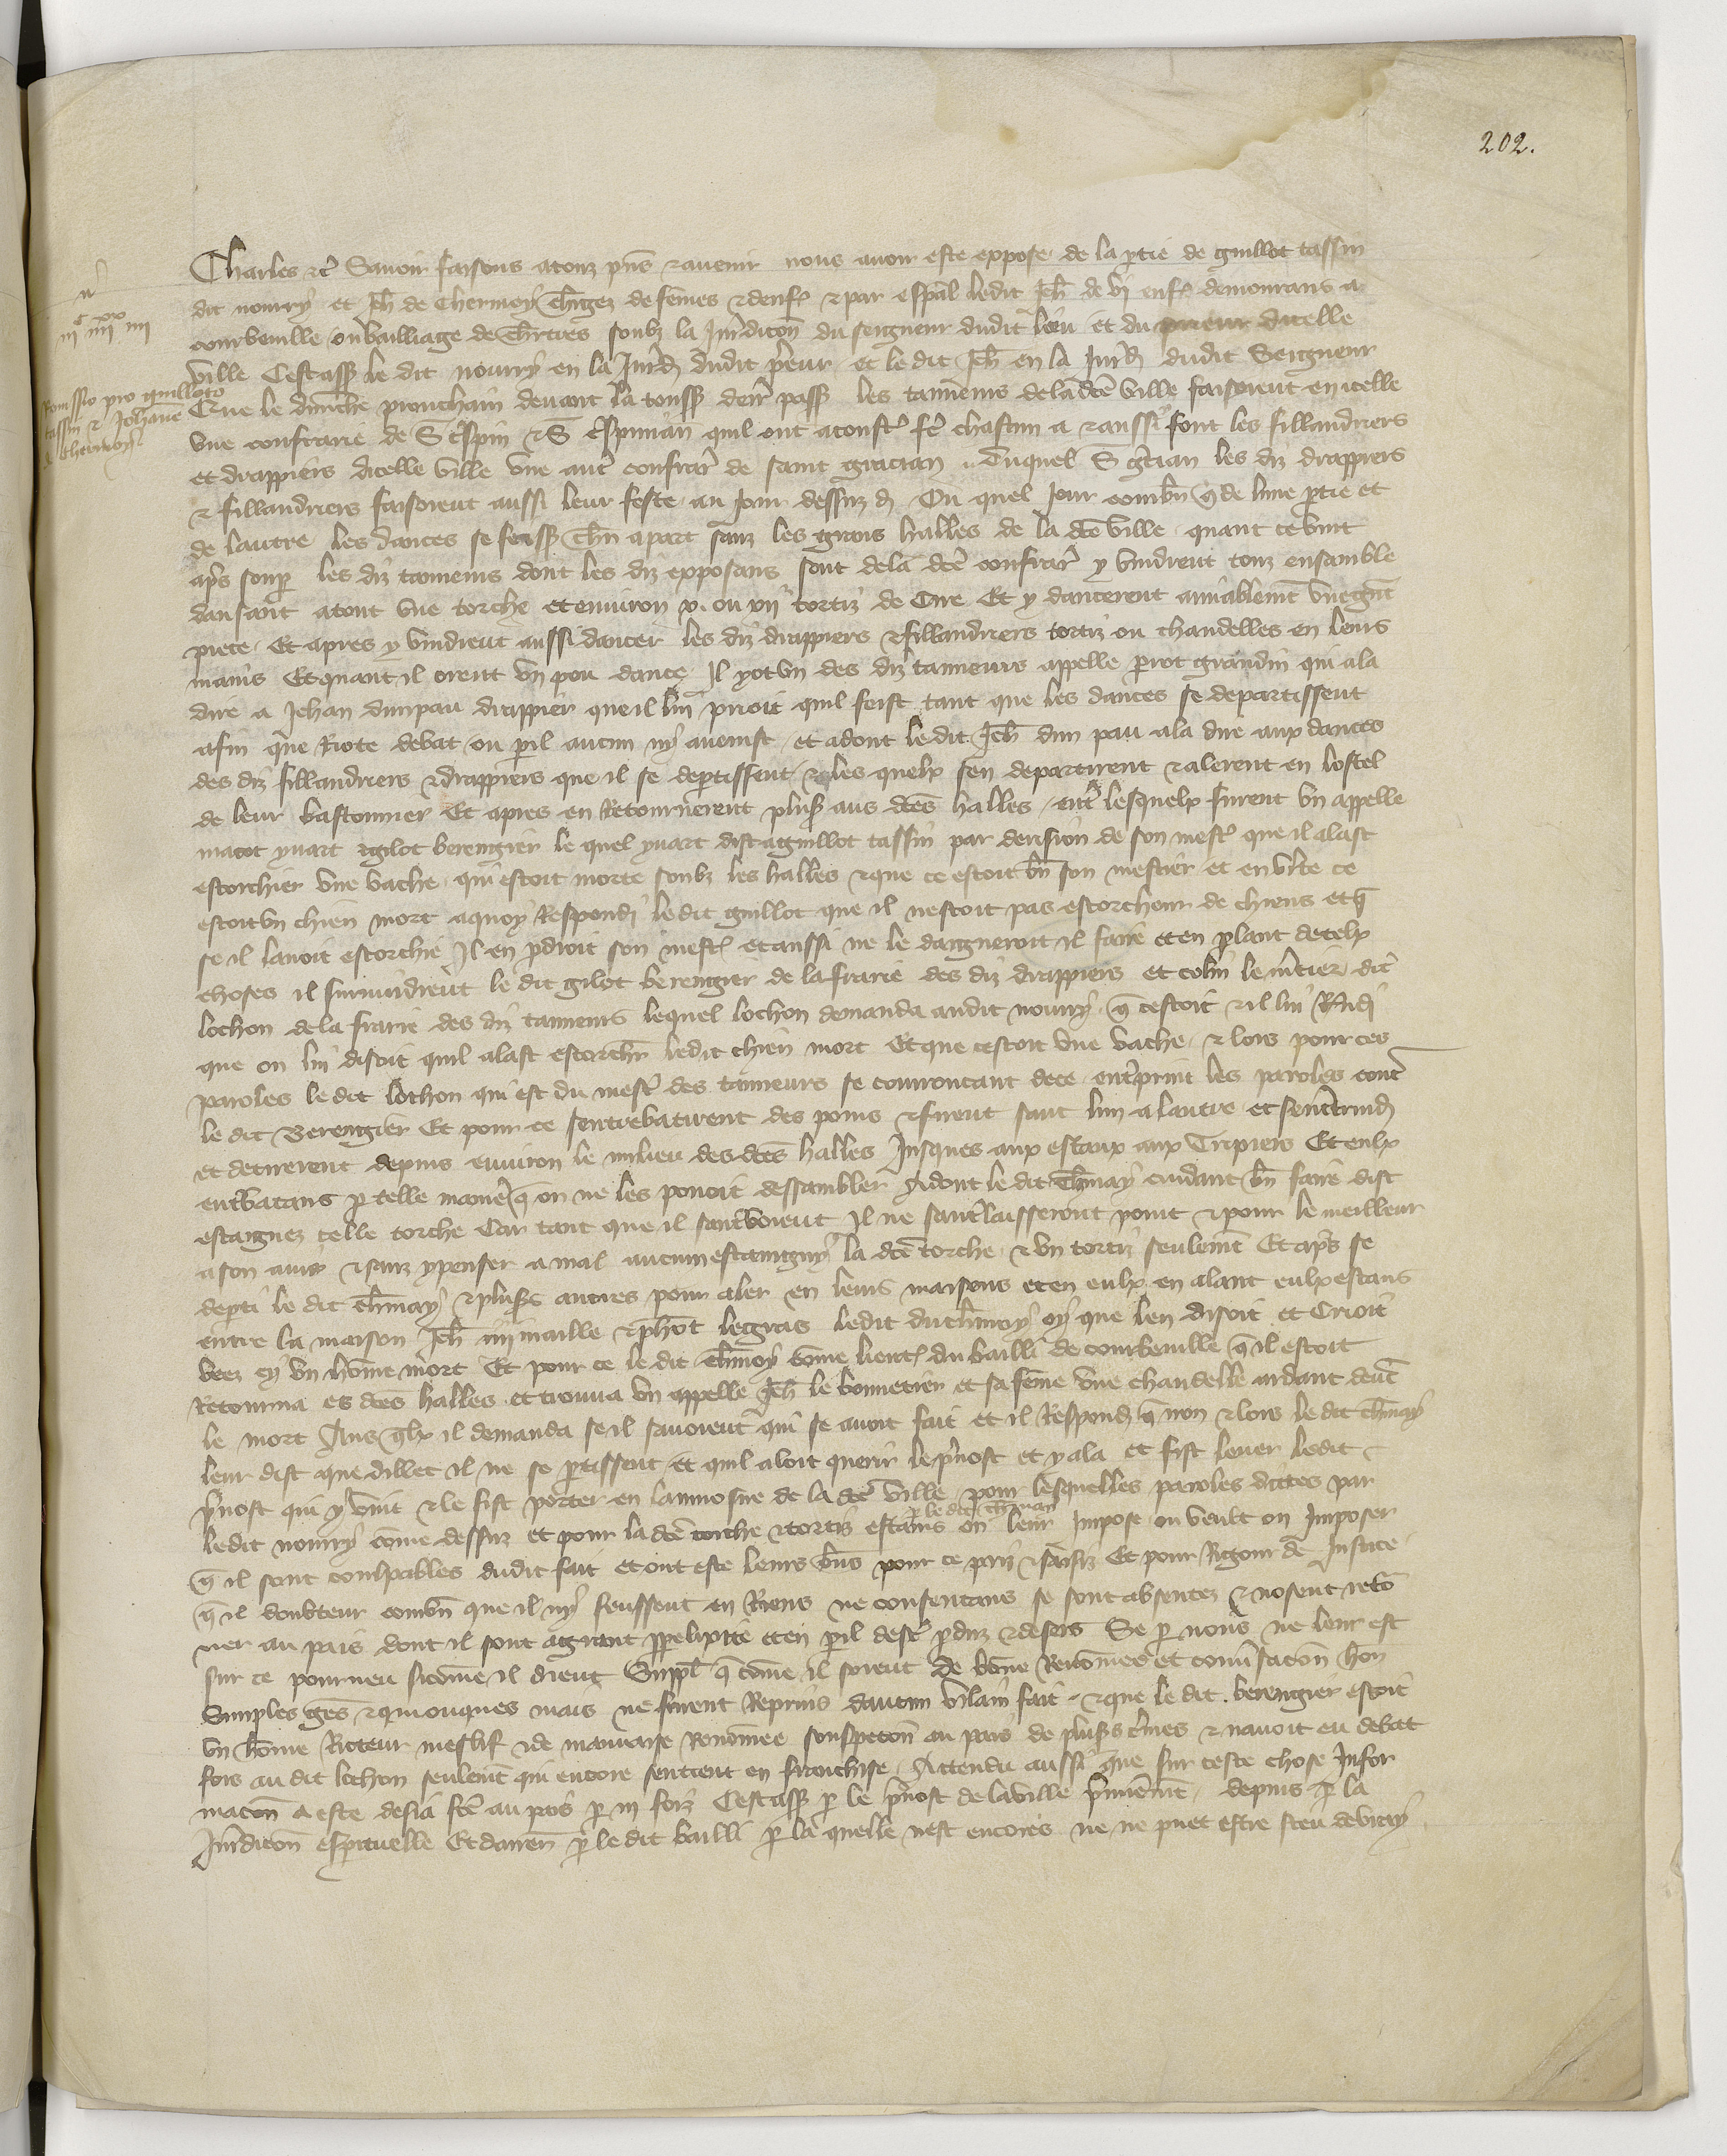 202.
Charles etc Savoir faisons a touz pns et avenir nous avoir este expose de la ptie de guillot tassin
dit nourry et Jeh de Chermoy chgez de femes et denfs et par espal ledit Jeh de vi enfs demourans a
courbeville ou bailliage de Chrtres soubz la Juridicon du seigneur dudit lieu et du prieur dicelle
ville Cestass le dit nourry en la Jurid dudit prieur et le dit Jeh en la Jurid dudit Seigneur
Que le dimenche prouchain devant la touss derr pass les tanneurs de la dce ville faisoient en icelle
une confrarie de S Crespin et S Crspinian quil ont acoust fe chascun a et aussi font les fillandriers
et drappiers dicelle ville une aut confrar de saint gracian Duquel S gcian les diz drappiers
et fillandriers faisoient aussi leur feste au Jour dessuz d Ou quel Jour combn q de lune ptie et
de lautre les dances se feiss chn apart souz les grans halles de la dce ville quant ce vint
aps soup les diz tanneurs dont les diz exposans sont de la dce confrar y vindrent touz ensamble
dansant atout une torche et environ x. ou xii tortiz de Cire Et y dancerent amiablemt une gnt
piece Et apres y vindrent aussi dancer les diz drappiers et fillandriers tortiz ou chandelles en leurs
mains Et quant il orent un pou dance Il y ot un des diz tanneurs appelle prot grandin qui ala
dire a Jehan dunpau drappier que il lui prioit quil feist tant que les dances se departissent
afin que Riote debat ou pil aucun ny avenist et adont le dit Jeh dun pau ala dire aux dances
des diz fillandriers et drappiers que il se deptissent les quelx sen departirent et alerent en lostel
de leur bastonnier Et apres en Retournerent plus aus dces halles ent lesquelx furent un appelle
macot yvart et gilot berengier le quel yvart dist a guillot tassin par derision de son mest que il alast
escorchier une vache qui estoit morte soubz les halles et que ce estoit bn son mestier et en vte ce
estoit un chien mort a quoy Respondi le dit guillot que il nestoit pas escorcheur de chiens et q
se il lavoit escorchie Il en pdroit son mest et aussi ne le daigneroit il faire et en plant de telx
choses il survindrent le dit gilot berengier de la frarie des diz drappiers et colin le mcier dit
lochon de la frarie des diz tanneurs lequel lochon demanda audit nourry q cestoit et il lui Rndi
que on lui disoit quil alast escorchr ledit chien mort Et que cestoit une vache et lors pour ces
paroles le dit lochon qui est du mest des tanneurs se courroucant de ce entprint les paroles cont
le dit Berengier Et pour ce sentrebatirent des poins et firent saut lun a lautre et sent
et detirerent depuis environ le milieu des dces halles Jusques aux estaux aux Tripiers Et eulx
entbatans p telle manie q on ne les pouoit dessambler Adont le dit chmay cuidant bn faire dist
estaignez celle torche Car tant que il sentvoient Il ne sentlaisseront point et pour le meilleur
a son avis et sanz y penser a mal aucun estaingny la dce torche et un tortiz seulemt Et aps se
depti le dit chmay et pluss autres pour aler en leurs maisons et en eulx en alant eulx estans
entre la maison Jeh iiii maille et phot legras ledit du chmoy oy que len disoit et Crioit
veez cy un home mort Et pour ce le dit chmoy come lieut du bailli de courbeville q il estoit
Retourna es dces halles et trouva un appelle Jeh le bonnetier et sa feme une chandelle ardant devt
le mort Aus qlx il demanda se il savoient qui se avoit fait et il Respond q non et lors le dit chmay
leur dist que dillec il ne se ptissent et quil aloit querir le pvost et y ala et fist lever ledit
pvost qui y vint et le fist porter en laumosne de la dce ville pour lesquelles paroles dictes par
p le dit chmay
ledit nourry come dessuz et pour la dce torche et tortiz estains on leur Impose ou veult on Imposer
q il sont coulpables dudit fait et ont este leurs bns pour ce prs et saisiz Et pour Rigour de Justice
q il doubteur combn que il ny feussent en Riens ne consentans se sont absentez et nosent reto
ner au pais dont il sont a grant pplexite et en pil dest pduz et desers Se p nous ne leur est
sur ce pourveu sicome il dient Suppl q come il soient de bone Renomee et convsacon hon
Simples gens et quonques mais ne furent Reprins daucun vilain fait et que le dit berengier estoit
un home Rioteur meslif et de mauvaise Renomee souspecon au pais de pluss cimes et navoit eu debat
fors au dit lochon seulemt qui encore sentient en franchise Attendu aussi que sur ceste chose Infor
macon a este desia fce au pais p iii foiz Cestass p le pvost de la ville pmieremt depuis p la
Juridicon espirituelle Et darren p le dit bailli p la quelle nest encores ne ne puet estre sceu de vray
n
iiic iiiixx iiii
Remissio pro guilloto
tassin et Johane
de chermoy